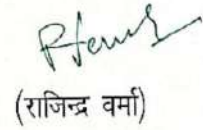 (राजिन्द्र वर्मा)